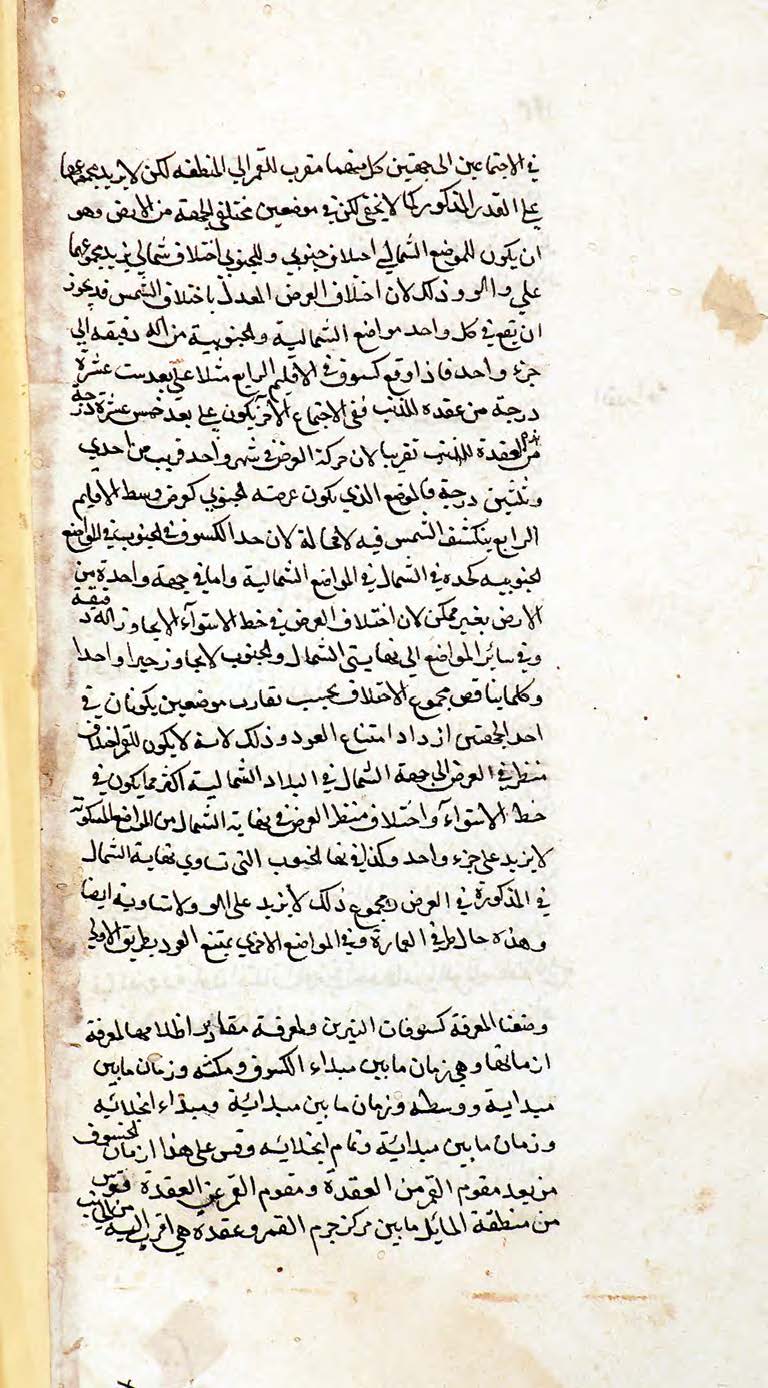 في الاجتماعين الى جهتين كل منهما مقرب للقمر الي المنطقه لكن لا يزيد مجموعهما
على القدر المذكور كما لا يخفى لكن في موضعين مختلفي الجهة من الارض وهو
ان يكون للموضع الشمالي اختلاف جنوبي وللجنوبي اختلاف شمالي يزيد مجموعهما
علي والو وذلك لان اختلاف العرض المعدل باختلاف الشمس قد يجوز
ان يقع في كل واحد مواضع الشمالية والجنوبية من اله دقيقه الي
جزء واحد فاذا وقع كسوف في الاقليم الرابع مثلا على بعد ست عشرة
درجة من عقده الذنب ففي الاجتماع الآخر يكون على بعد خمس عشرة درجة
من العقدة الذنب تقريبا لان حركة العرض في شهر واحد قريب من احدي
وثلثين درجة فالموضع الذي يكون عرضه الجنوبي كعرض وسط الاقليم
الرابع ينكشف الشمس فيه لا محالة لان حد الكسوف في الجنوب في المواضع
الجنوبيه كحده في الشمال في المواضع الشمالية واما في جهة واحدة من
الارض بغير ممكن لان اختلاف العرض في خط الاستوآء لا يجاوز اله دقيقة
وفي سائر المواضع الي نهايتي الشمال والجنوب لا يجاوز جزءا واحدا
وكلما يناقص مجموع الاختلاف بحسب تقارب موضعين يكونان في
احد الجهتين ازداد امتناع العود وذلك لانه لا يكون للقمر اختلاف
منظر في العرض الى جهة الشمال في البلاد الشمالية اكثر مما يكون في
خط الاستوآء واختلاف منظر العرض في نهاية الشمال من المواضع المسكونه
لا يزيد على جزء واحد وكذا في نها الجنوب التي تساوي نهاية الشمال
في المذكورة في العرض ومجموع ذلك لا يزيد على الو ولا يساويه ايضا
وهذه حال طرفي العمارة وفي المواضع الاخري يمتنع العود بطريق الاولي
وضعنا لمعرفة كسوفات النيرين ولمعرفة مقادير اظلامها لمعرفة
ازمانها وهي زمان ما بين مبداء الكسوف ومكثه وزمان ما بين
مبداية ووسطه وزمان ما بين مبدائة ومبداء انجلائه
وزمان ما بين مبدائة وتمام انجلائه وقس على هذا ازمان الخسوف
من بعد مقوم القمر من العقدة ومقوم القمر عن العقدة قوس
من منطقة المائل ما بين مركز جرم القمر وعقدة هي اقرب اليه من الجانب